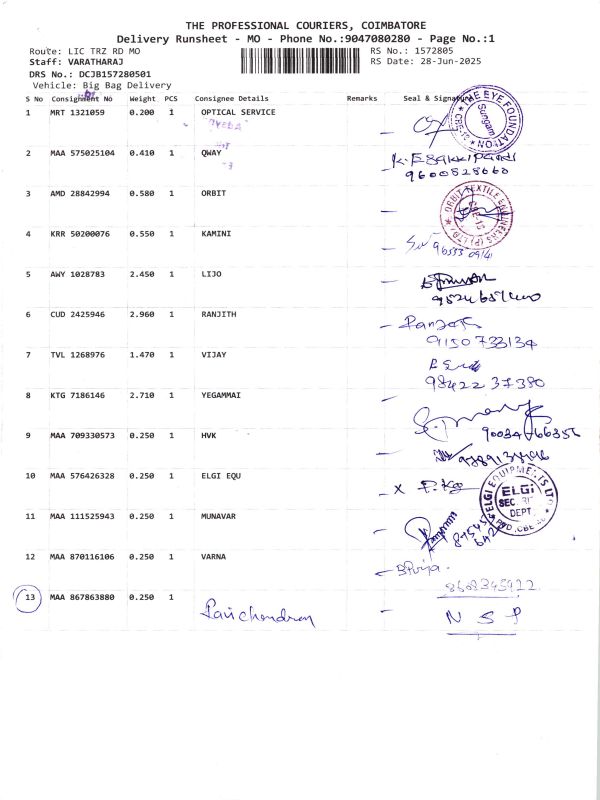 THE PROFESSIONAL COURIERS, COIMBATORE
Delivery Runsheet - MO - Phone No.:9047080280 - Page No.:1
Route: LIC TRZ RD MO RS No.: 1572805
Staff: VARATHARAJ RS Date: 28-Jun-2025
DRS No.: DCJB157280501
Vehicle: Big Bag Delivery
S No Consignment No Weight PCS Consignee Details Remarks Seal & Signature
1 MRT 1321059 0.200 1 OPTICAL SERVICE
THE EYE FOUNDATION Sungam
2 MAA 575025104 0.410 1 QWAY
9600528660
3 AMD 28842994 0.580 1 ORBIT
ORBIT TEXTILE
4 KRR 50200076 0.550 1 KAMINI
5 AWY 1028783 2.450 1 LIJO
6 CUD 2425946 2.960 1 RANJITH
9150733134
7 TVL 1268976 1.470 1 VIJAY
98422 37380
8 KTG 7186146 2.710 1 YEGAMMAI
9 MAA 709330573 0.250 1 HVK
10 MAA 576426328 0.250 1 ELGI EQU
x
ELGI EQUIPMENTS LTD ELGI DEPT.
11 MAA 111525943 0.250 1 MUNAVAR
12 MAA 870116106 0.250 1 VARNA
13 MAA 867863880 0.250 1
N S P